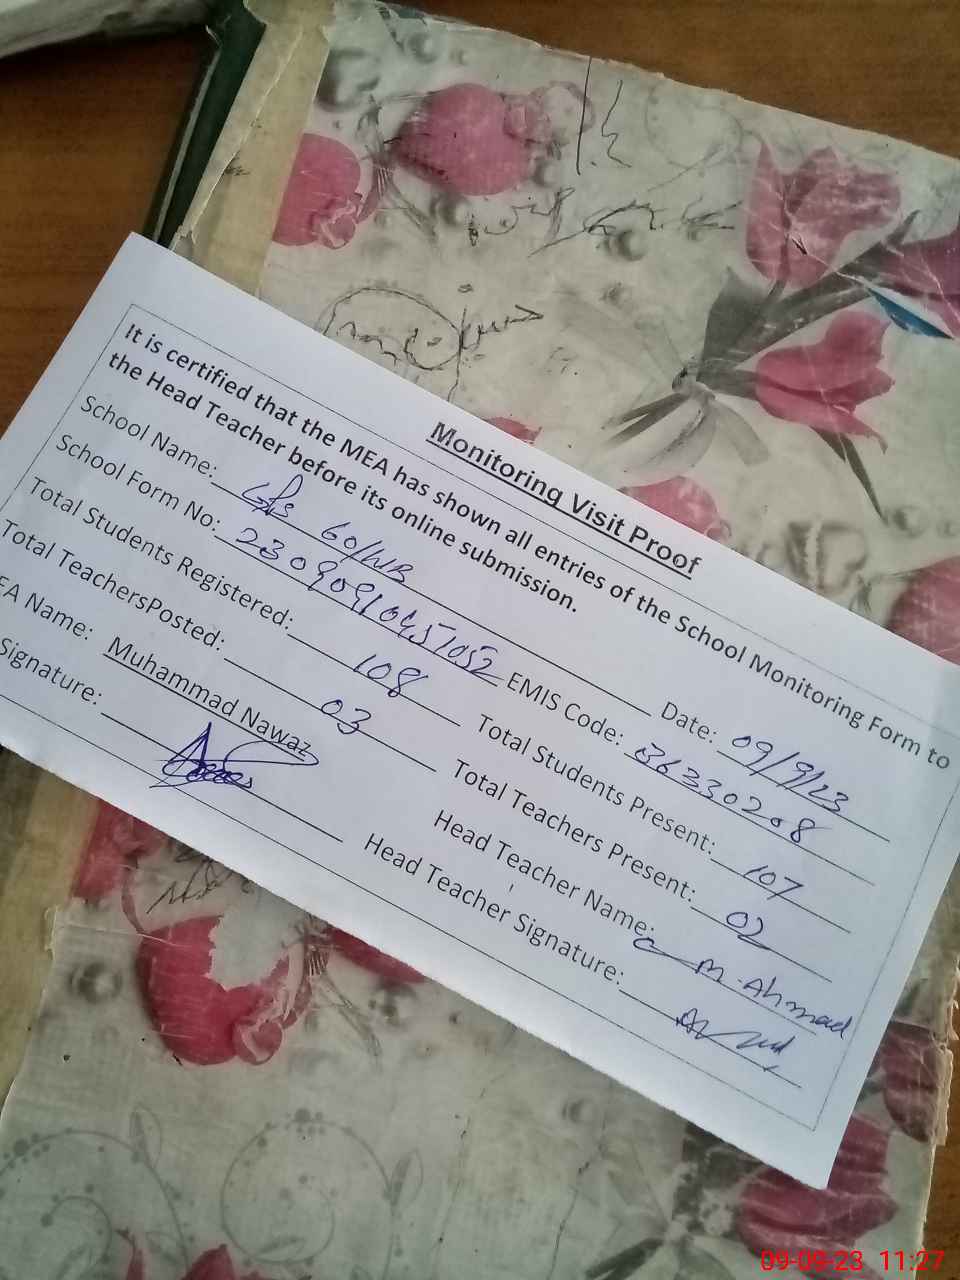 Monitoring Visit Proof
It is certified that the MEA has shown all entries of the School Monitoring Form to
the Head Teacher before its online submission.
School Name: GPS 60/WB Date: 09/9/23
School Form No: 23090910451052 EMIS Code: 36330208
Total Students Registered: 108 Total Students Present: 107
Total TeachersPosted: 03 Total Teachers Present: 02
EA Name: Muhammad Nawaz Head Teacher Name: M. Ahmad
Signature: Head Teacher Signature:
09-09-23 11:27